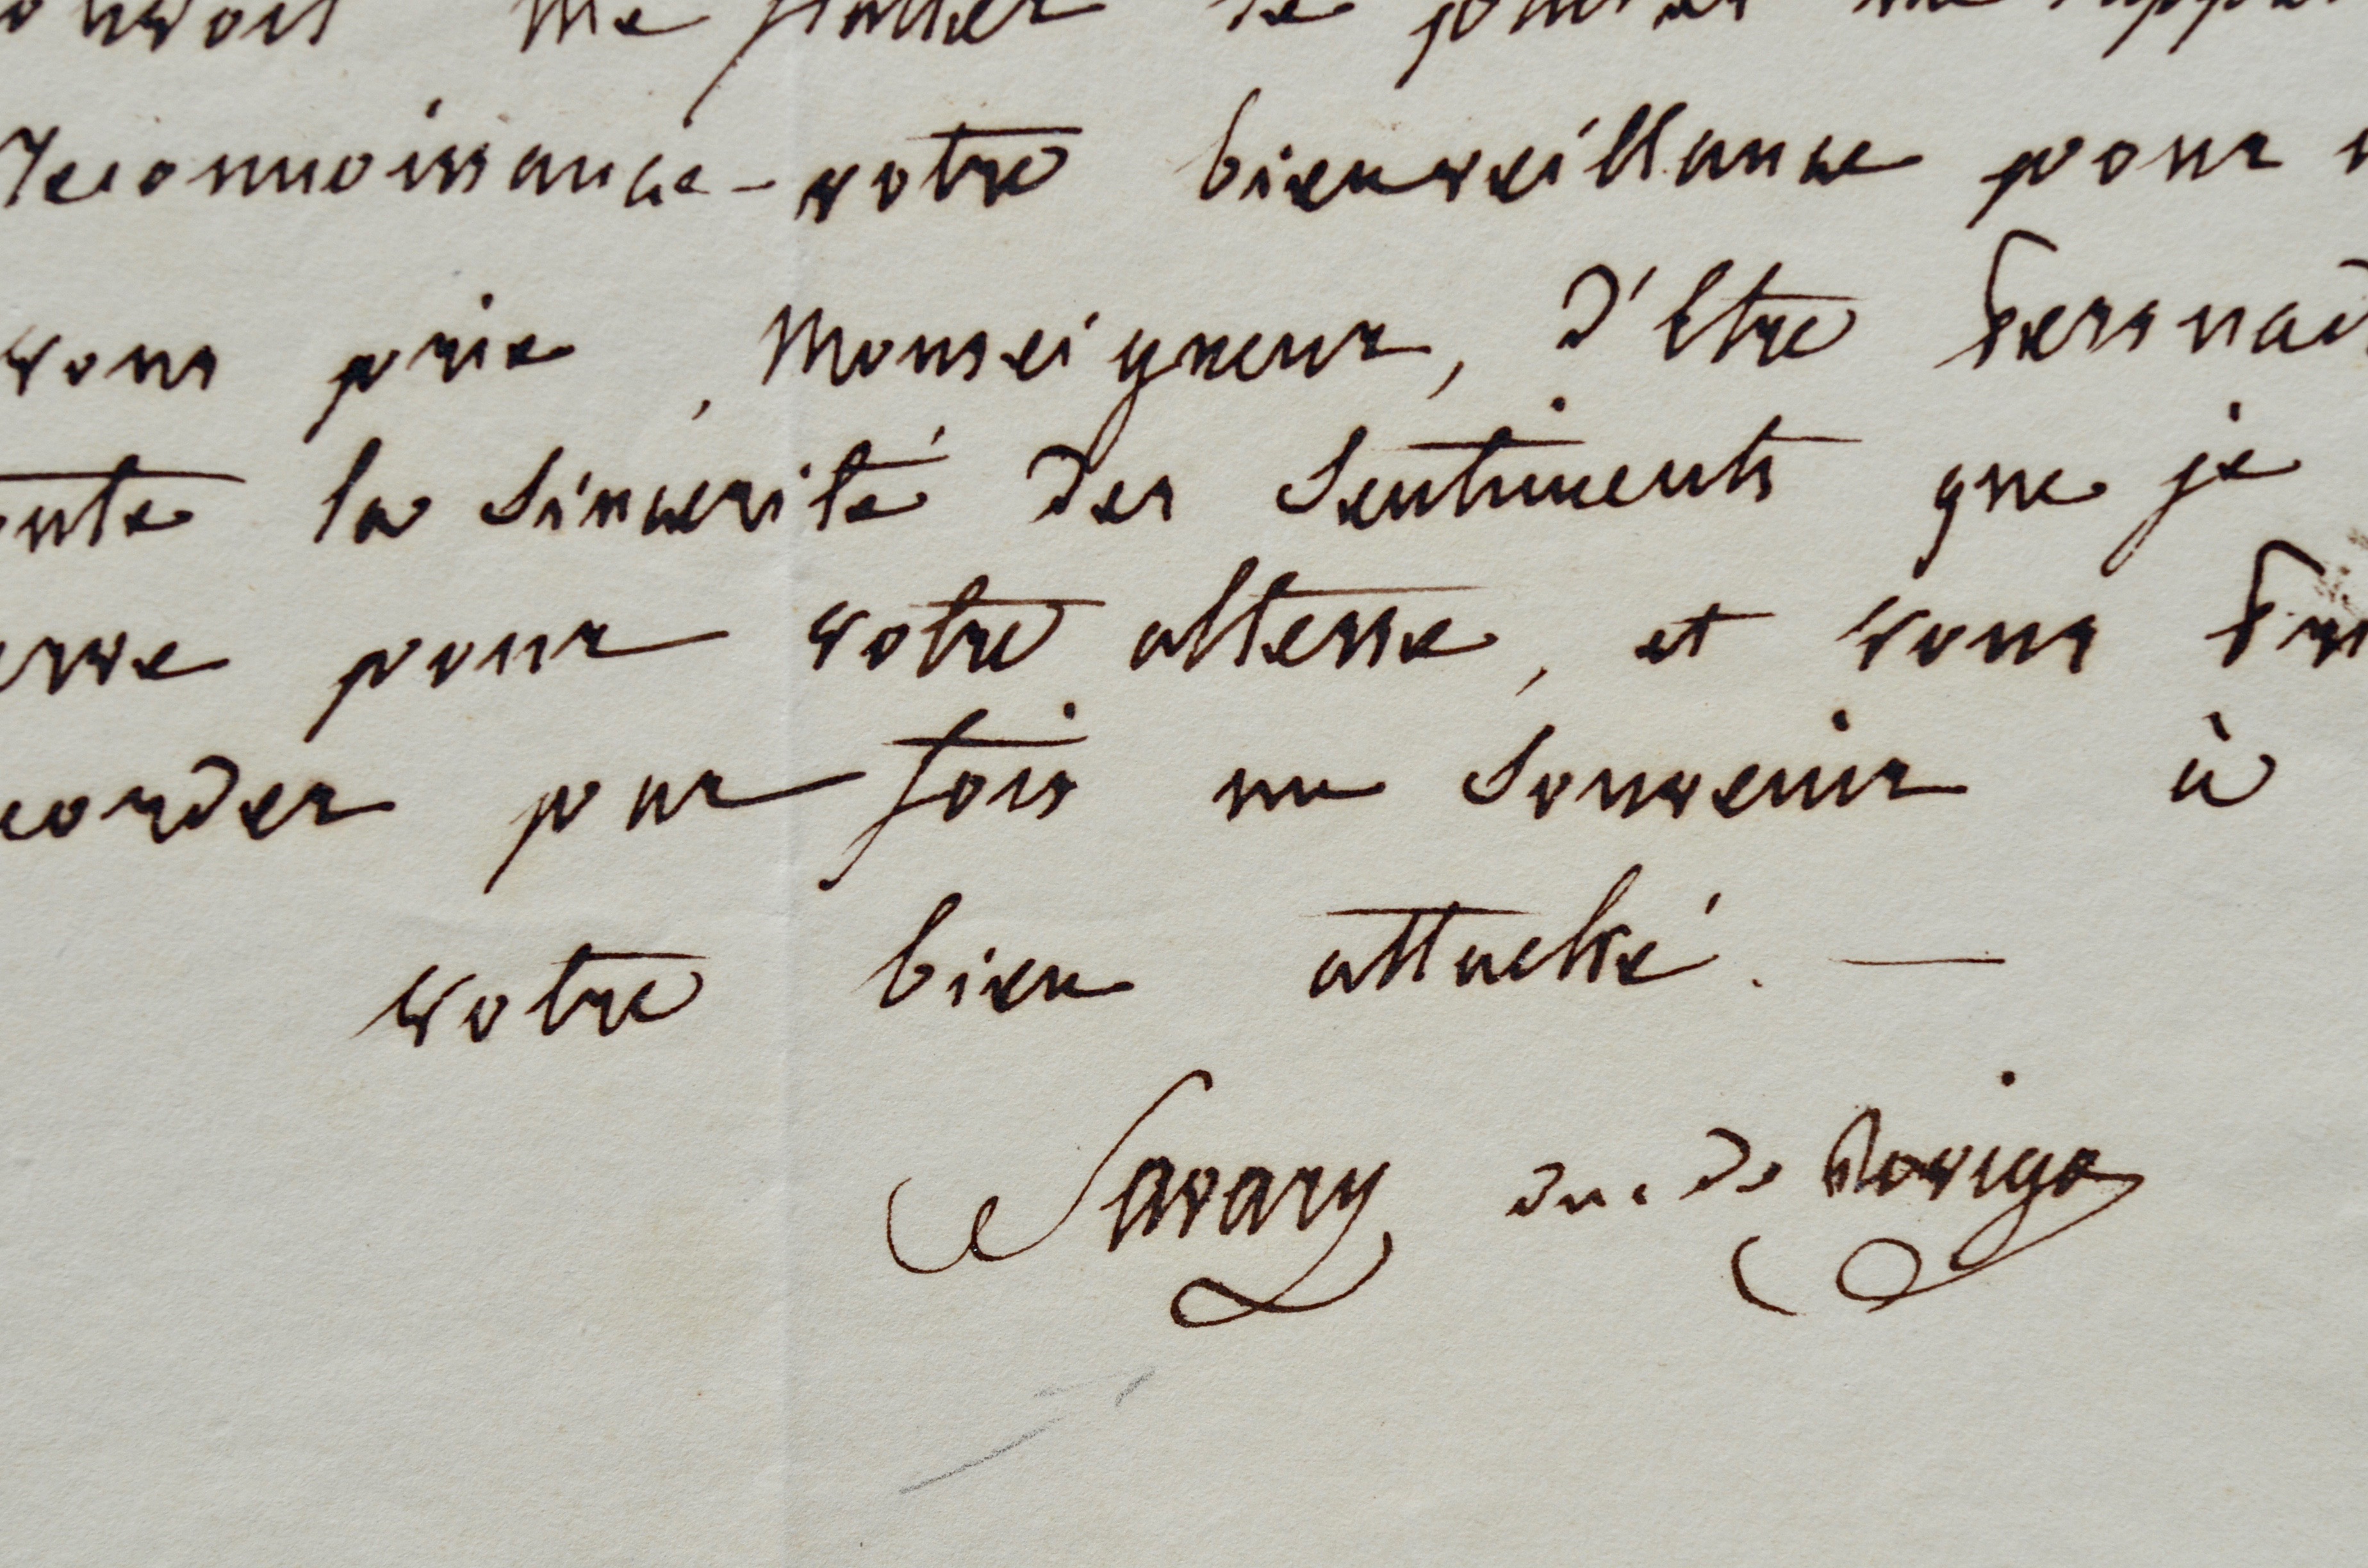 me flatter de
reconnoissance - votre bienveillance pour
vous prie, Monseigneur, d'être persuad
la sincerité des sentiments que je
pour votre altesse, et vous
corder par fois un souvenir à
votre bien attaché. —
Savary duc de Rovigo